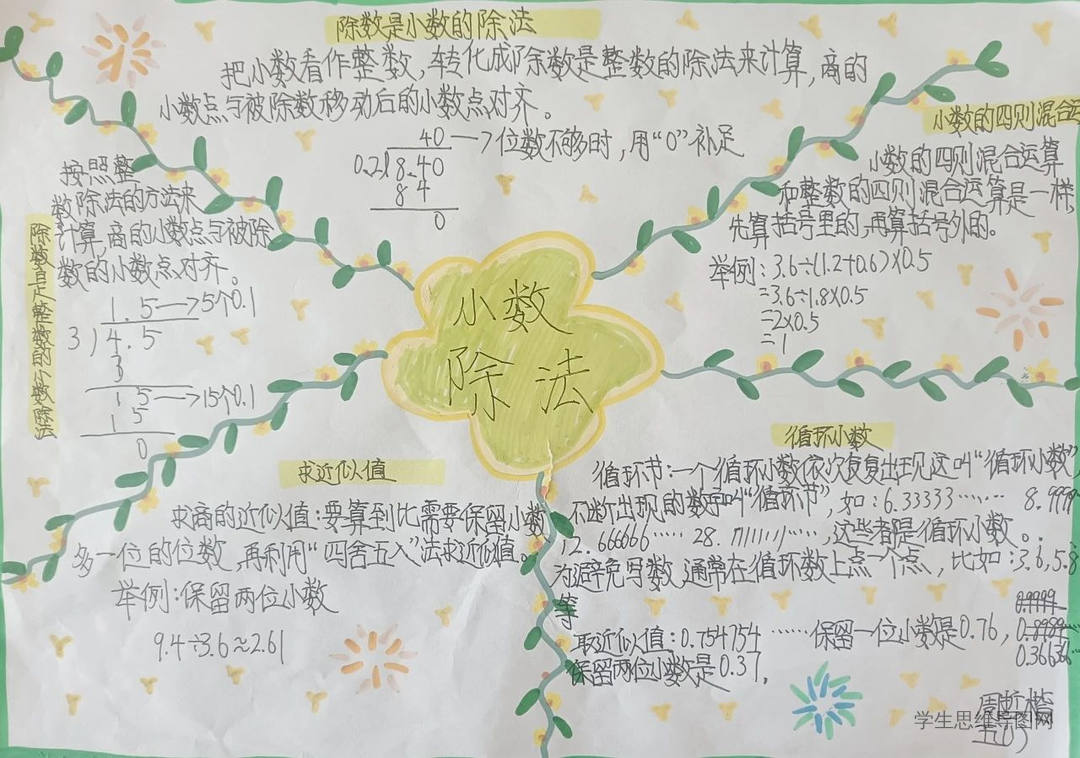 除数是小数的除法
把小数看作整数,转化成除数是整数的除法来计算,商的
小数点与被除数移动后的小数点对齐。
40→位数不够时,用“0”补足
0.21 8.40
8 4
0
按照整
数除法的方法来
计算,商的小数点与被除
数的小数点对齐。
除数是整数的小数除法
1.5→5个0.1
3)4.5
3
1 5→15个0.1
1 5
0
小数的四则混合运
小数的四则混合运算
和整数的四则混合运算是一样,
先算括号里的,再算括号外的。
举例:3.6÷(1.2+0.6)×0.5
=3.6÷1.8×0.5
=2×0.5
=1
小数
除法
求近似值
求商的近似值:要算到比需要保留小数
多一位的位数,再利用“四舍五入”法求近似值。
举例:保留两位小数
9.4÷3.6≈2.61
循环小数
循环节:一个循环小数依次复复出现这叫“循环小数”
不断出现的数字叫“循环节”,如:6.33333…… 8.999
12.66666…… 28.7111111……,这些都是循环小数。
为避免写数,通常在循环数上点一个点,比如:3.6,5.8
等
取近似值:0.754754……保留一位小数是0.76,
0.36636…
保留两位小数是0.37。
学生思维导图网
五(1)